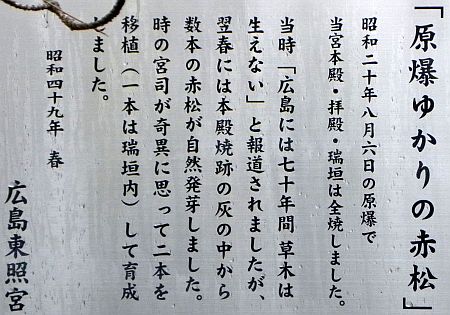 「原爆ゆかりの赤松」
昭和二十年八月六日の原爆で
当宮本殿・拝殿・瑞垣は全焼しました。
当時「広島には七十年間 草木は
生えない」と報道されましたが、
翌春には本殿焼跡の灰の中から
数本の赤松が自然発芽しました。
時の宮司が奇異に思って二本を
移植(一本は瑞垣内)して育成
しました。
昭和四十九年 春
広島東照宮